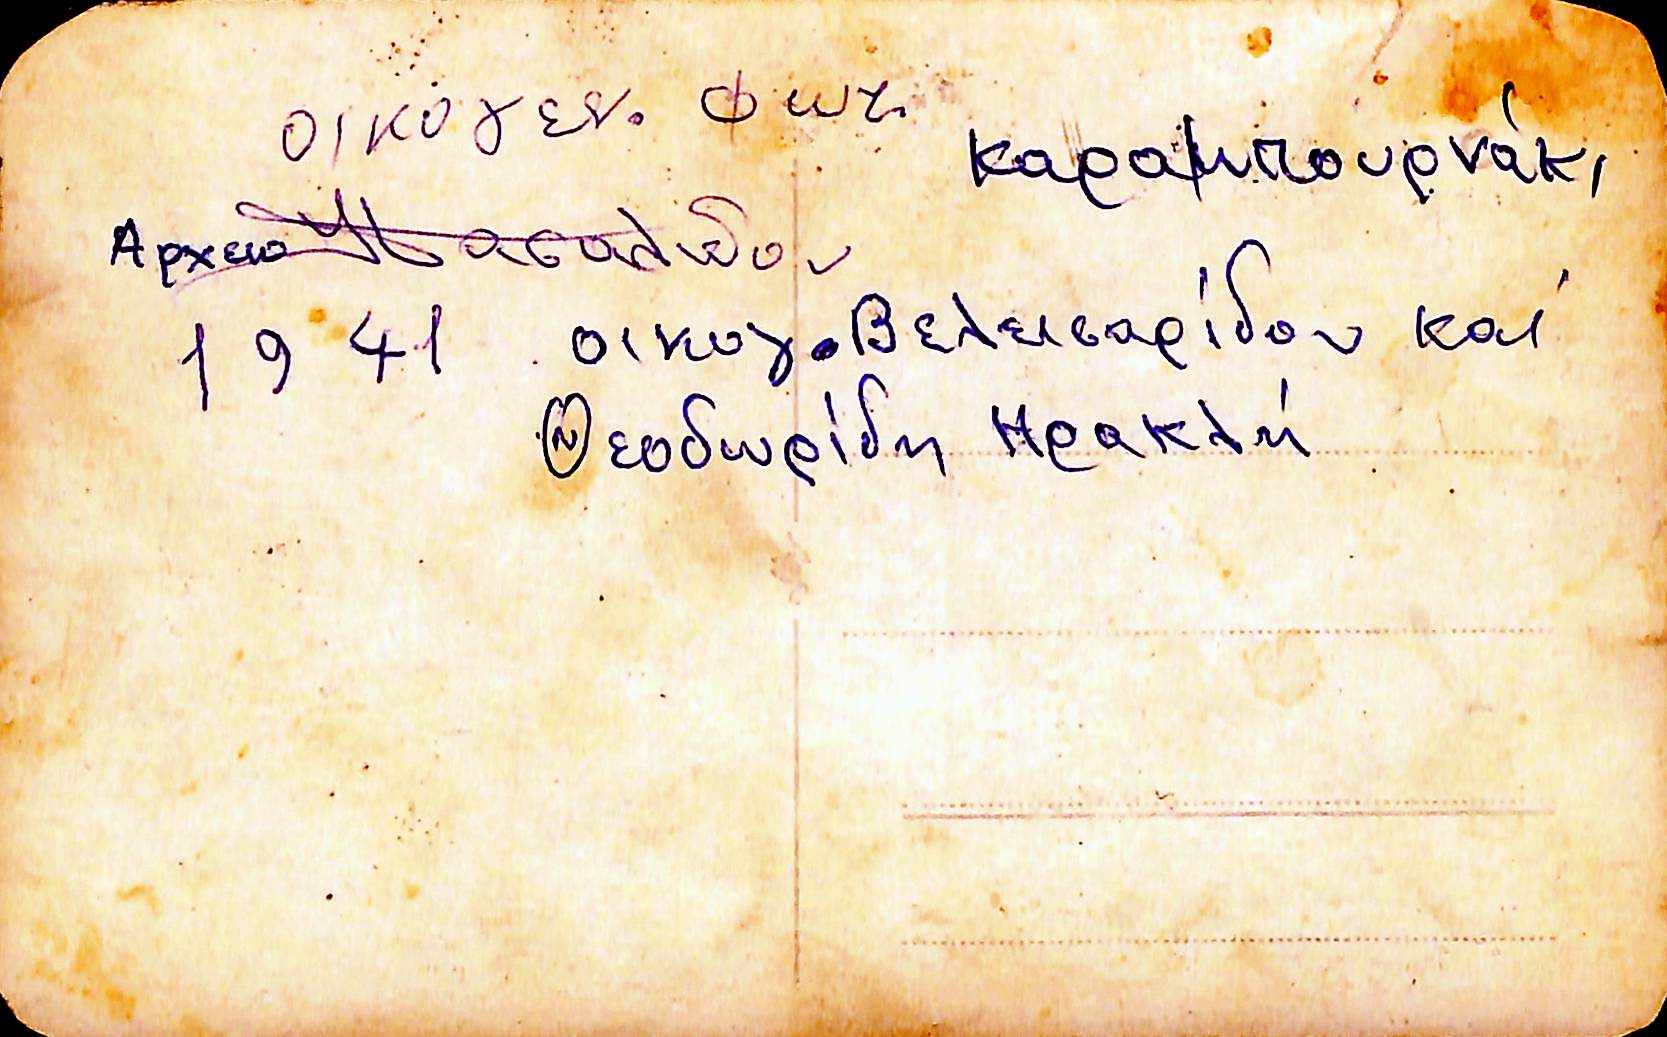 οικογεν. φωτ.
Καραμπουρνάκι
Αρχειο Πασαλίδου
1941 οικογ. Βελεισαρίδου και
Θεοδωρίδη Ηρακλή